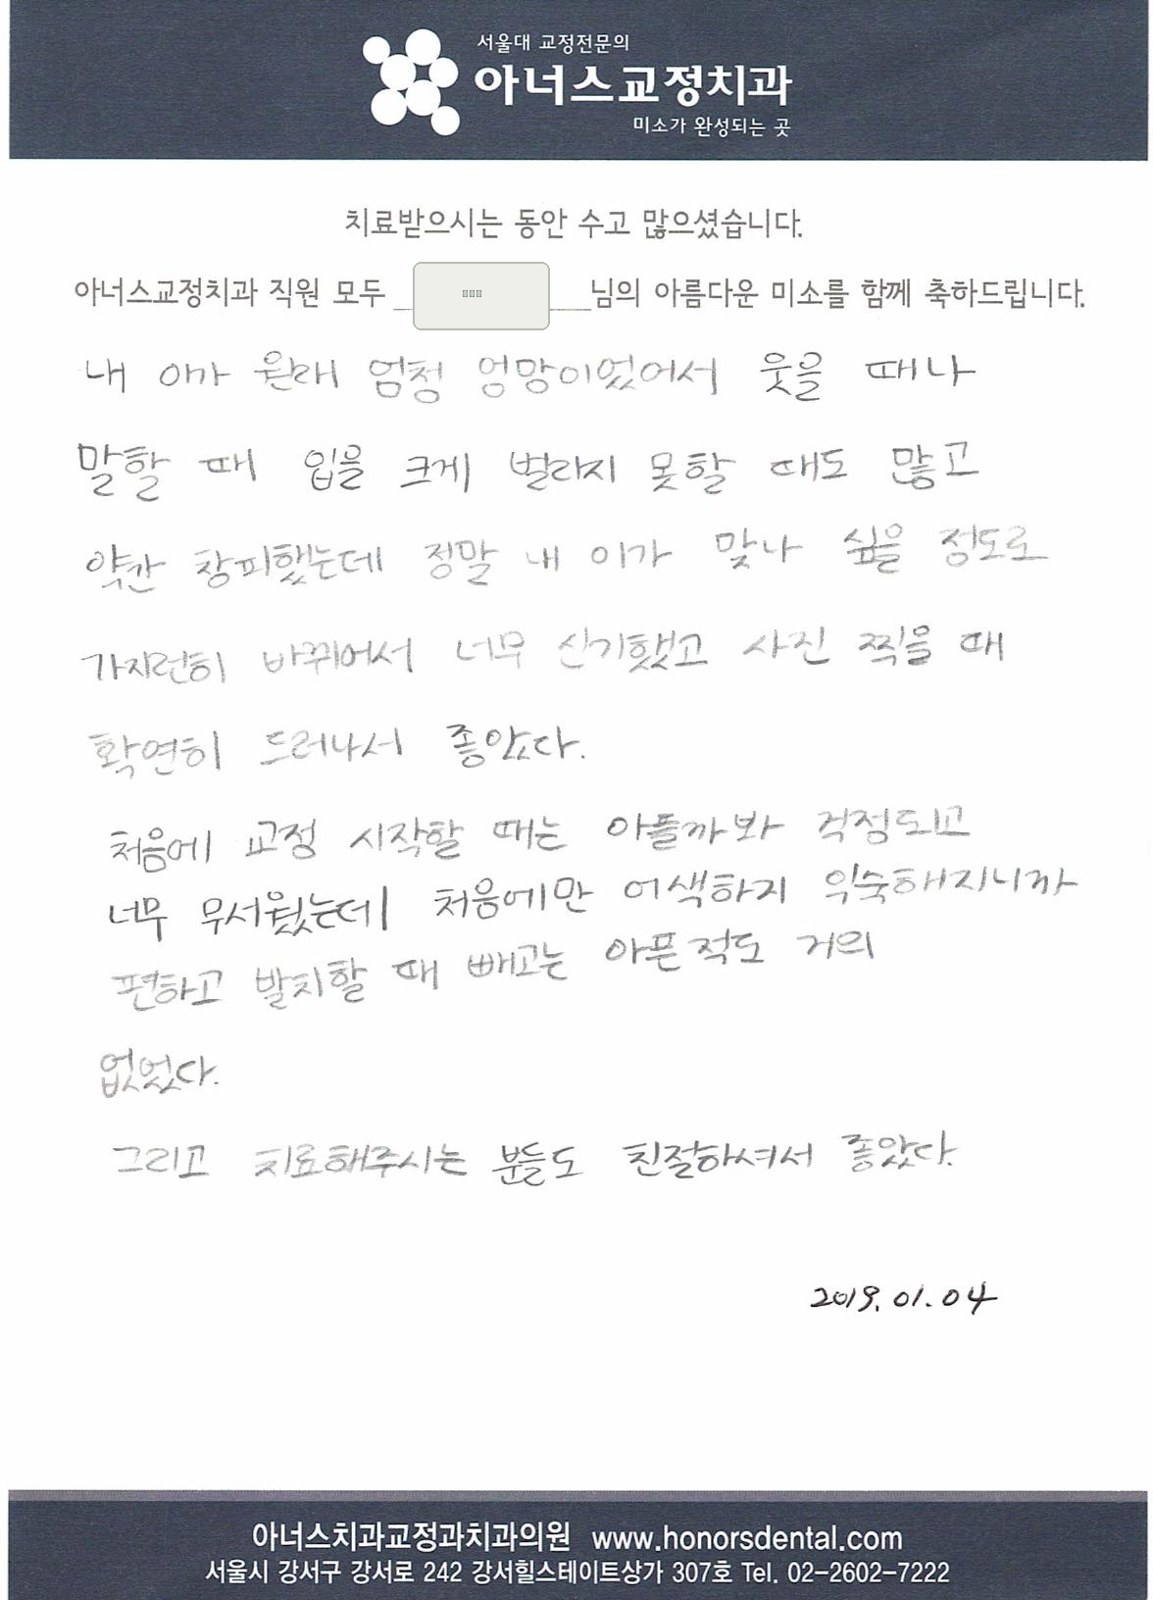 서울대 교정전문의
아너스교정치과
미소가 완성되는 곳
치료받으시는 동안 수고 많으셨습니다.
아너스교정치과 직원 모두 님의 아름다운 미소를 함께 축하드립니다.
내 이가 원래 엄청 엉망이었어서 웃을 때나
말할 때 입을 크게 벌리지 못할 때도 많고
약간 창피했는데 정말 내 이가 맞나 싶을 정도로
가지런히 바뀌어서 너무 신기했고 사진 찍을 때
확연히 드러나서 좋았다.
처음에 교정 시작할 때는 아플까봐 걱정되고
너무 무서웠는데 처음에만 어색하지 익숙해지니까
편하고 발치할 때 빼고는 아픈적도 거의
없었다.
그리고 치료해주시는 분들도 친절하셔서 좋았다.
2019.01.04
아너스치과교정과치과의원 www.honorsdental.com
서울시 강서구 강서로 242 강서힐스테이트상가 307호 Tel. 02-2602-7222